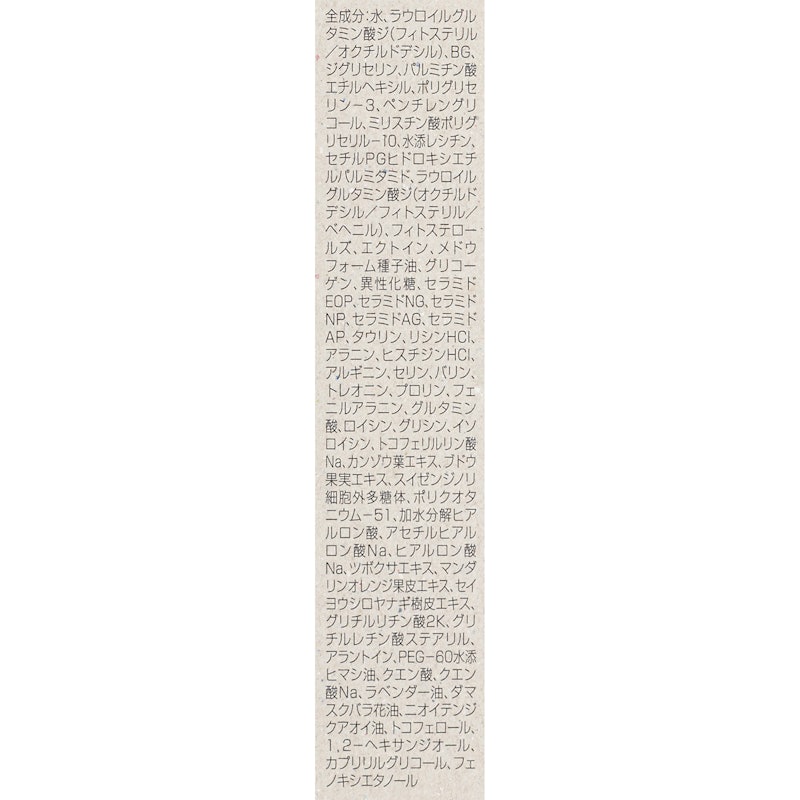 全成分:水、ラウロイルグル
タミン酸ジ(フィトステリル
/オクチルドデシル)、BG、
ジグリセリン、パルミチン酸
エチルヘキシル、ポリグリセ
リン-3、ペンチレングリ
コール、ミリスチン酸ポリグ
リセリル-10、水添レシチン、
セチルPGヒドロキシエチ
ルパルミタミド、ラウロイル
グルタミン酸ジ(オクチルド
デシル/フィトステリル/
ベヘニル)、フィトステロー
ルズ、エクトイン、メドウ
フォーム種子油、グリコー
ゲン、異性化糖、セラミド
EOP、セラミドNG、セラミド
NP、セラミドAG、セラミド
AP、タウリン、リシンHCl、
アラニン、ヒスチジンHCl、
アルギニン、セリン、バリン、
トレオニン、プロリン、フェ
ニルアラニン、グルタミン
酸、ロイシン、グリシン、イソ
ロイシン、トコフェリルリン酸
Na、カンゾウ葉エキス、ブドウ
果実エキス、スイゼンジノリ
細胞外多糖体、ポリクオタ
ニウム-51、加水分解ヒア
ルロン酸、アセチルヒアル
ロン酸Na、ヒアルロン酸
Na、ツボクサエキス、マンダ
リンオレンジ果皮エキス、セイ
ヨウシロヤナギ樹皮エキス、
グリチルリチン酸2K、グリ
チルレチン酸ステアリル、
アラントイン、PEG-60水添
ヒマシ油、クエン酸、クエン
酸Na、ラベンダー油、ダマ
スクバラ花油、ニオイテンジ
クアオイ油、トコフェロール、
1,2-ヘキサンジオール、
カプリリルグリコール、フェ
ノキシエタノール